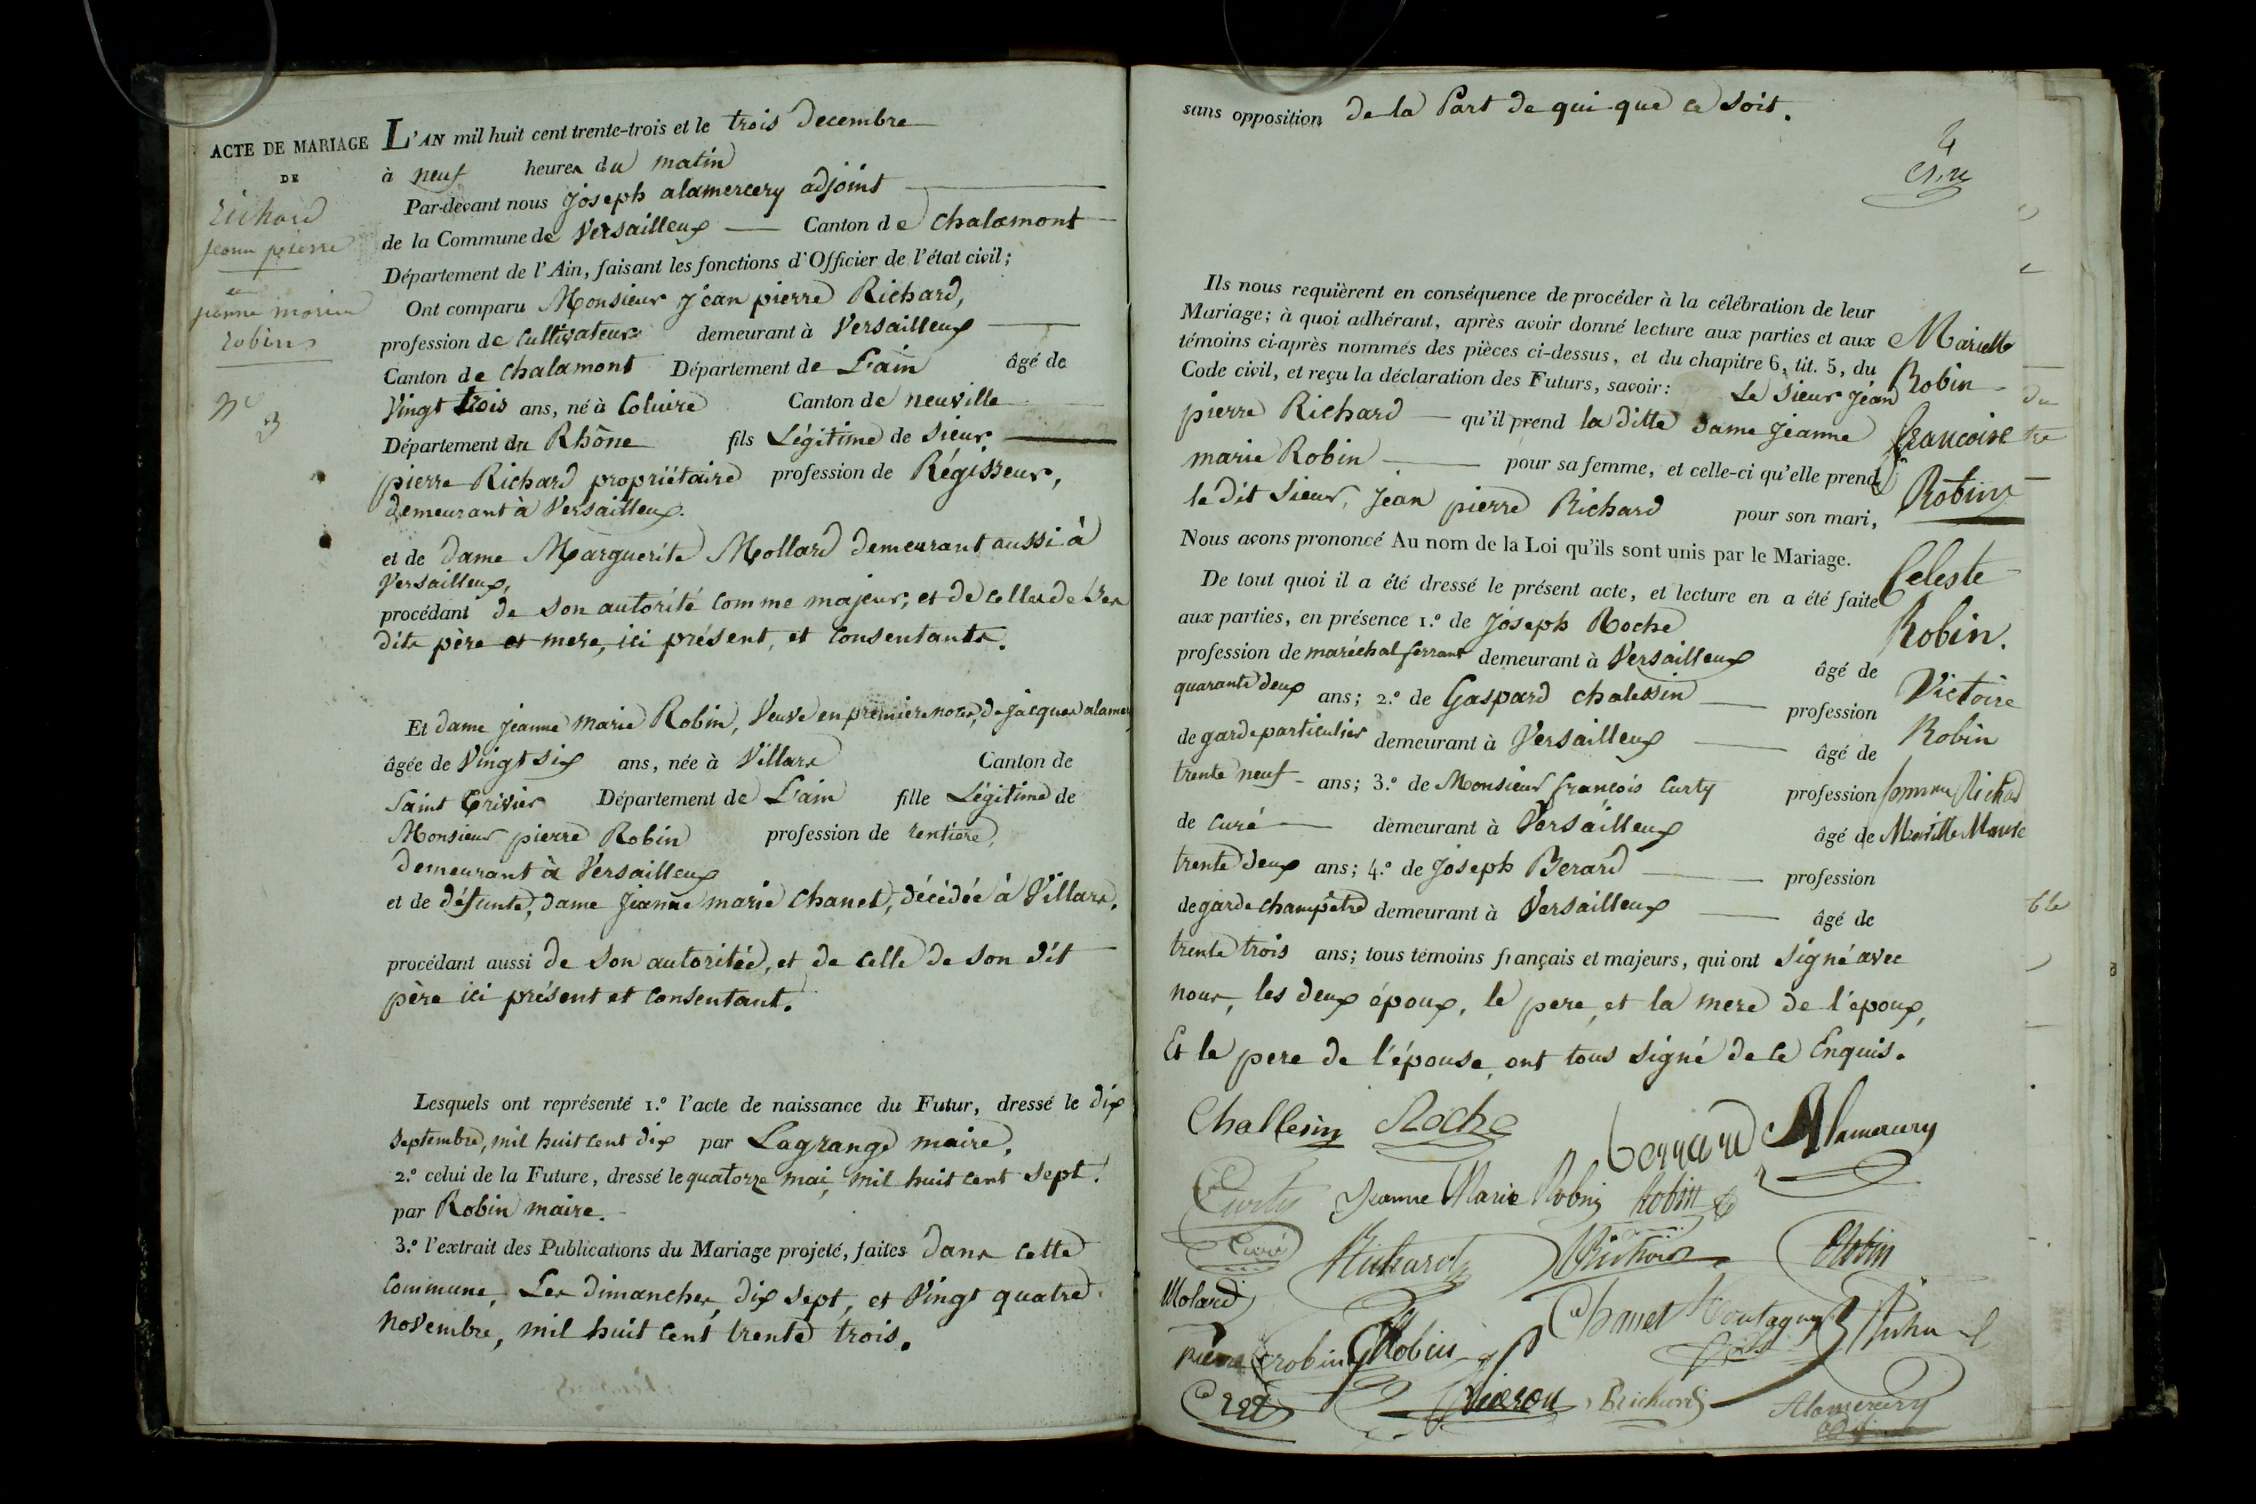 ACTE DE MARIAGE
DE
Richard
Jean pierre
et
jeanne marie
robin
N° 3
L'AN mil huit cent trente-trois et le trois decembre
à neuf heures du matin
Par-devant nous joseph alamercery adjoint
de la Commune de Versailleux Canton de chalamont
Département de l'Ain, faisant les fonctions d'Officier de l'état civil;
Ont comparu Monsieur jéan pierre Richard,
profession de Cultivateur demeurant à Versailleux
Canton de chalamont Département de L'ain âgé de
Vingt trois ans, né à Coluire Canton de neuville
Département du Rhône fils Légitime de sieur
pierre Richard propriétaire profession de Régisseur,
demeurant à Versailleux.
et de dame Marguerite Mollard demeurant aussi à
Versailleux,
procédant de son autorité comme majeur, et de celles de ses
dits père et mere, ici présent, et Consentants.
Et dame jeanne marie Robin, Veuve en premiere noces, de jacques alamer
âgée de Vingt six ans, née à Villars Canton de
Saint Trivier Département de L'ain fille Légitime de
Monsieur pierre Robin profession de rentiere,
demeurant à Versailleux
et de défunte, dame jeanne marie Chanet, décédée à Villars,
procédant aussi de son autoritéé, et de celle de son dit
père ici présent et Consentant.
Lesquels ont représenté 1.° l'acte de naissance du Futur, dressé le dix
septembre, mil huit cent dix par Lagrange maire,
2.° celui de la Future, dressé le quatorze mai, mil huit cent sept.
par Robin maire.
3.° l'extrait des Publications du Mariage projeté, faites dans cette
commune, Les dimanches, dix sept, et Vingt quatre
novembre, mil huit cent trente trois.
sans opposition de la Part de qui que ce soit.
Ils nous requièrent en conséquence de procéder à la célébration de leur
Mariage; à quoi adhérant, après avoir donné lecture aux parties et aux
témoins ci-après nommés des pièces ci-dessus, et du chapitre 6, tit. 5, du
Code civil, et reçu la déclaration des Futurs, savoir: Le sieur jéan
pierre Richard qu'il prend la ditte dame jeanne
marie Robin pour sa femme, et celle-ci qu'elle prend
le dit sieur, jean pierre Richard pour son mari,
Nous avons prononcé Au nom de la Loi qu'ils sont unis par le Mariage.
De tout quoi il a été dressé le présent acte, et lecture en a été faite
aux parties, en présence 1.° de joseph Roche
profession de maréchal ferrant demeurant à Versailleux âgé de
quarante deux ans; 2.° de Gaspard chalessin profession
de garde particulier demeurant à Versailleux âgé de
trente neuf ans; 3.° de Monsieur françois Curty profession
de curé demeurant à Versailleux âgé de
trente deux ans; 4.° de joseph Berard profession
de garde champêtre demeurant à Versailleux âgé de
trente trois ans; tous témoins français et majeurs, qui ont signé avec
nous, les deux époux, le pere, et la mere de l'epoux,
Et le pere de l'épouse, ont tous signé de ce Enquis.
Mariette
Robin
francoise
Robin
Celeste
Robin.
Victoire
Robin
Challesin Roche berrard Alamercery
Curty Jeanne Marie Robin Robin
Curé Richard Richard Robin
Molard Chanet Montagny Richard
pierre robin Robin
Richard Alamercery
adj